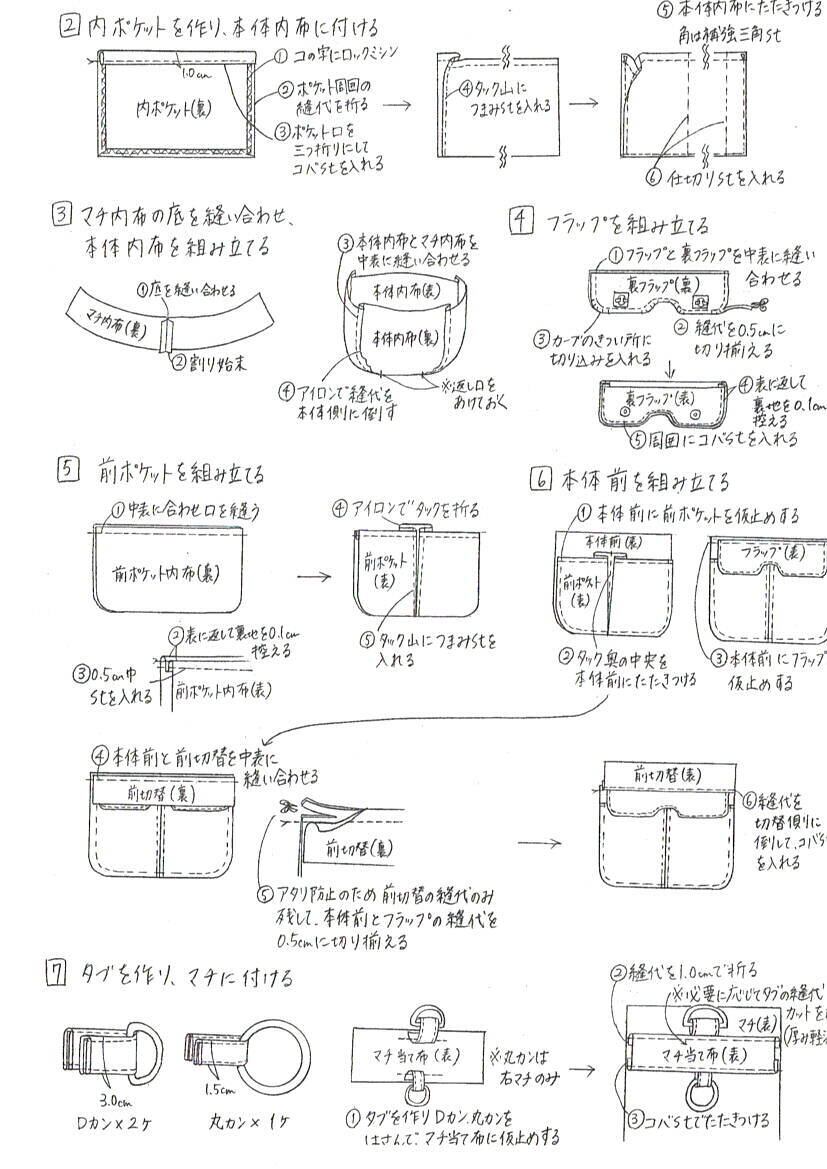 2 内ポケットを作り、本体内布に付ける
①コの字にロックミシン
1.0cm
内ポケット(裏)
②ポケット周囲の
縫代を折る
③ポケット口を
三つ折りにして
コバstを入れる
④タック山に
つまみstを入れる
⑤本体内布にたたきつける
角は補強三角st
⑥仕切りstを入れる
3 マチ内布の底を縫い合わせ、
本体内布を組み立てる
①底を縫い合わせる
マチ内布(裏)
②割り始末
③本体内布とマチ内布を
中表に縫い合わせる
本体内布(表)
本体内布(裏)
④アイロンで縫代を
本体側に倒す
※返し口を
あけておく
4 フラップを組み立てる
①フラップと裏フラップを中表に縫い
合わせる
裏フラップ(裏)
③カーブのきつい所に
切り込みを入れる
②縫代を0.5cmに
切り揃える
裏フラップ(表)
④表に返して
裏地を0.1cm
控える
⑤周囲にコバstを入れる
5 前ポケットを組み立てる
①中表に合わせ口を縫う
前ポケット内布(裏)
②表に返して裏地を0.1cm
控える
③0.5cm巾
stを入れる
前ポケット内布(表)
④アイロンでタックを折る
前ポケット
(表)
⑤タック山につまみstを
入れる
6 本体前を組み立てる
①本体前に前ポケットを仮止めする
本体前(表)
前ポケット
(表)
②タック奥の中央を
本体前にたたきつける
フラップ(表)
③本体前にフラップ
仮止めする
④本体前と前切替を中表に
縫い合わせる
前切替(裏)
前切替(裏)
⑤アタリ防止のため前切替の縫代のみ
残して、本体前とフラップの縫代を
0.5cmに切り揃える
前切替(表)
⑥縫代を
切替側に
倒して、コバs
を入れる
7 タブを作り、マチに付ける
3.0cm
Dカン×2ケ
1.5cm
丸カン×1ケ
マチ当て布(表)
※丸カンは
右マチのみ
①タブを作りDカン、丸カンを
はさんで、マチ当て布に仮止めする
②縫代を1.0cmで折る
※必要に応じてタブの縫代
カットを
(厚み軽
マチ(表)
マチ当て布(表)
③コバstでたたきつける